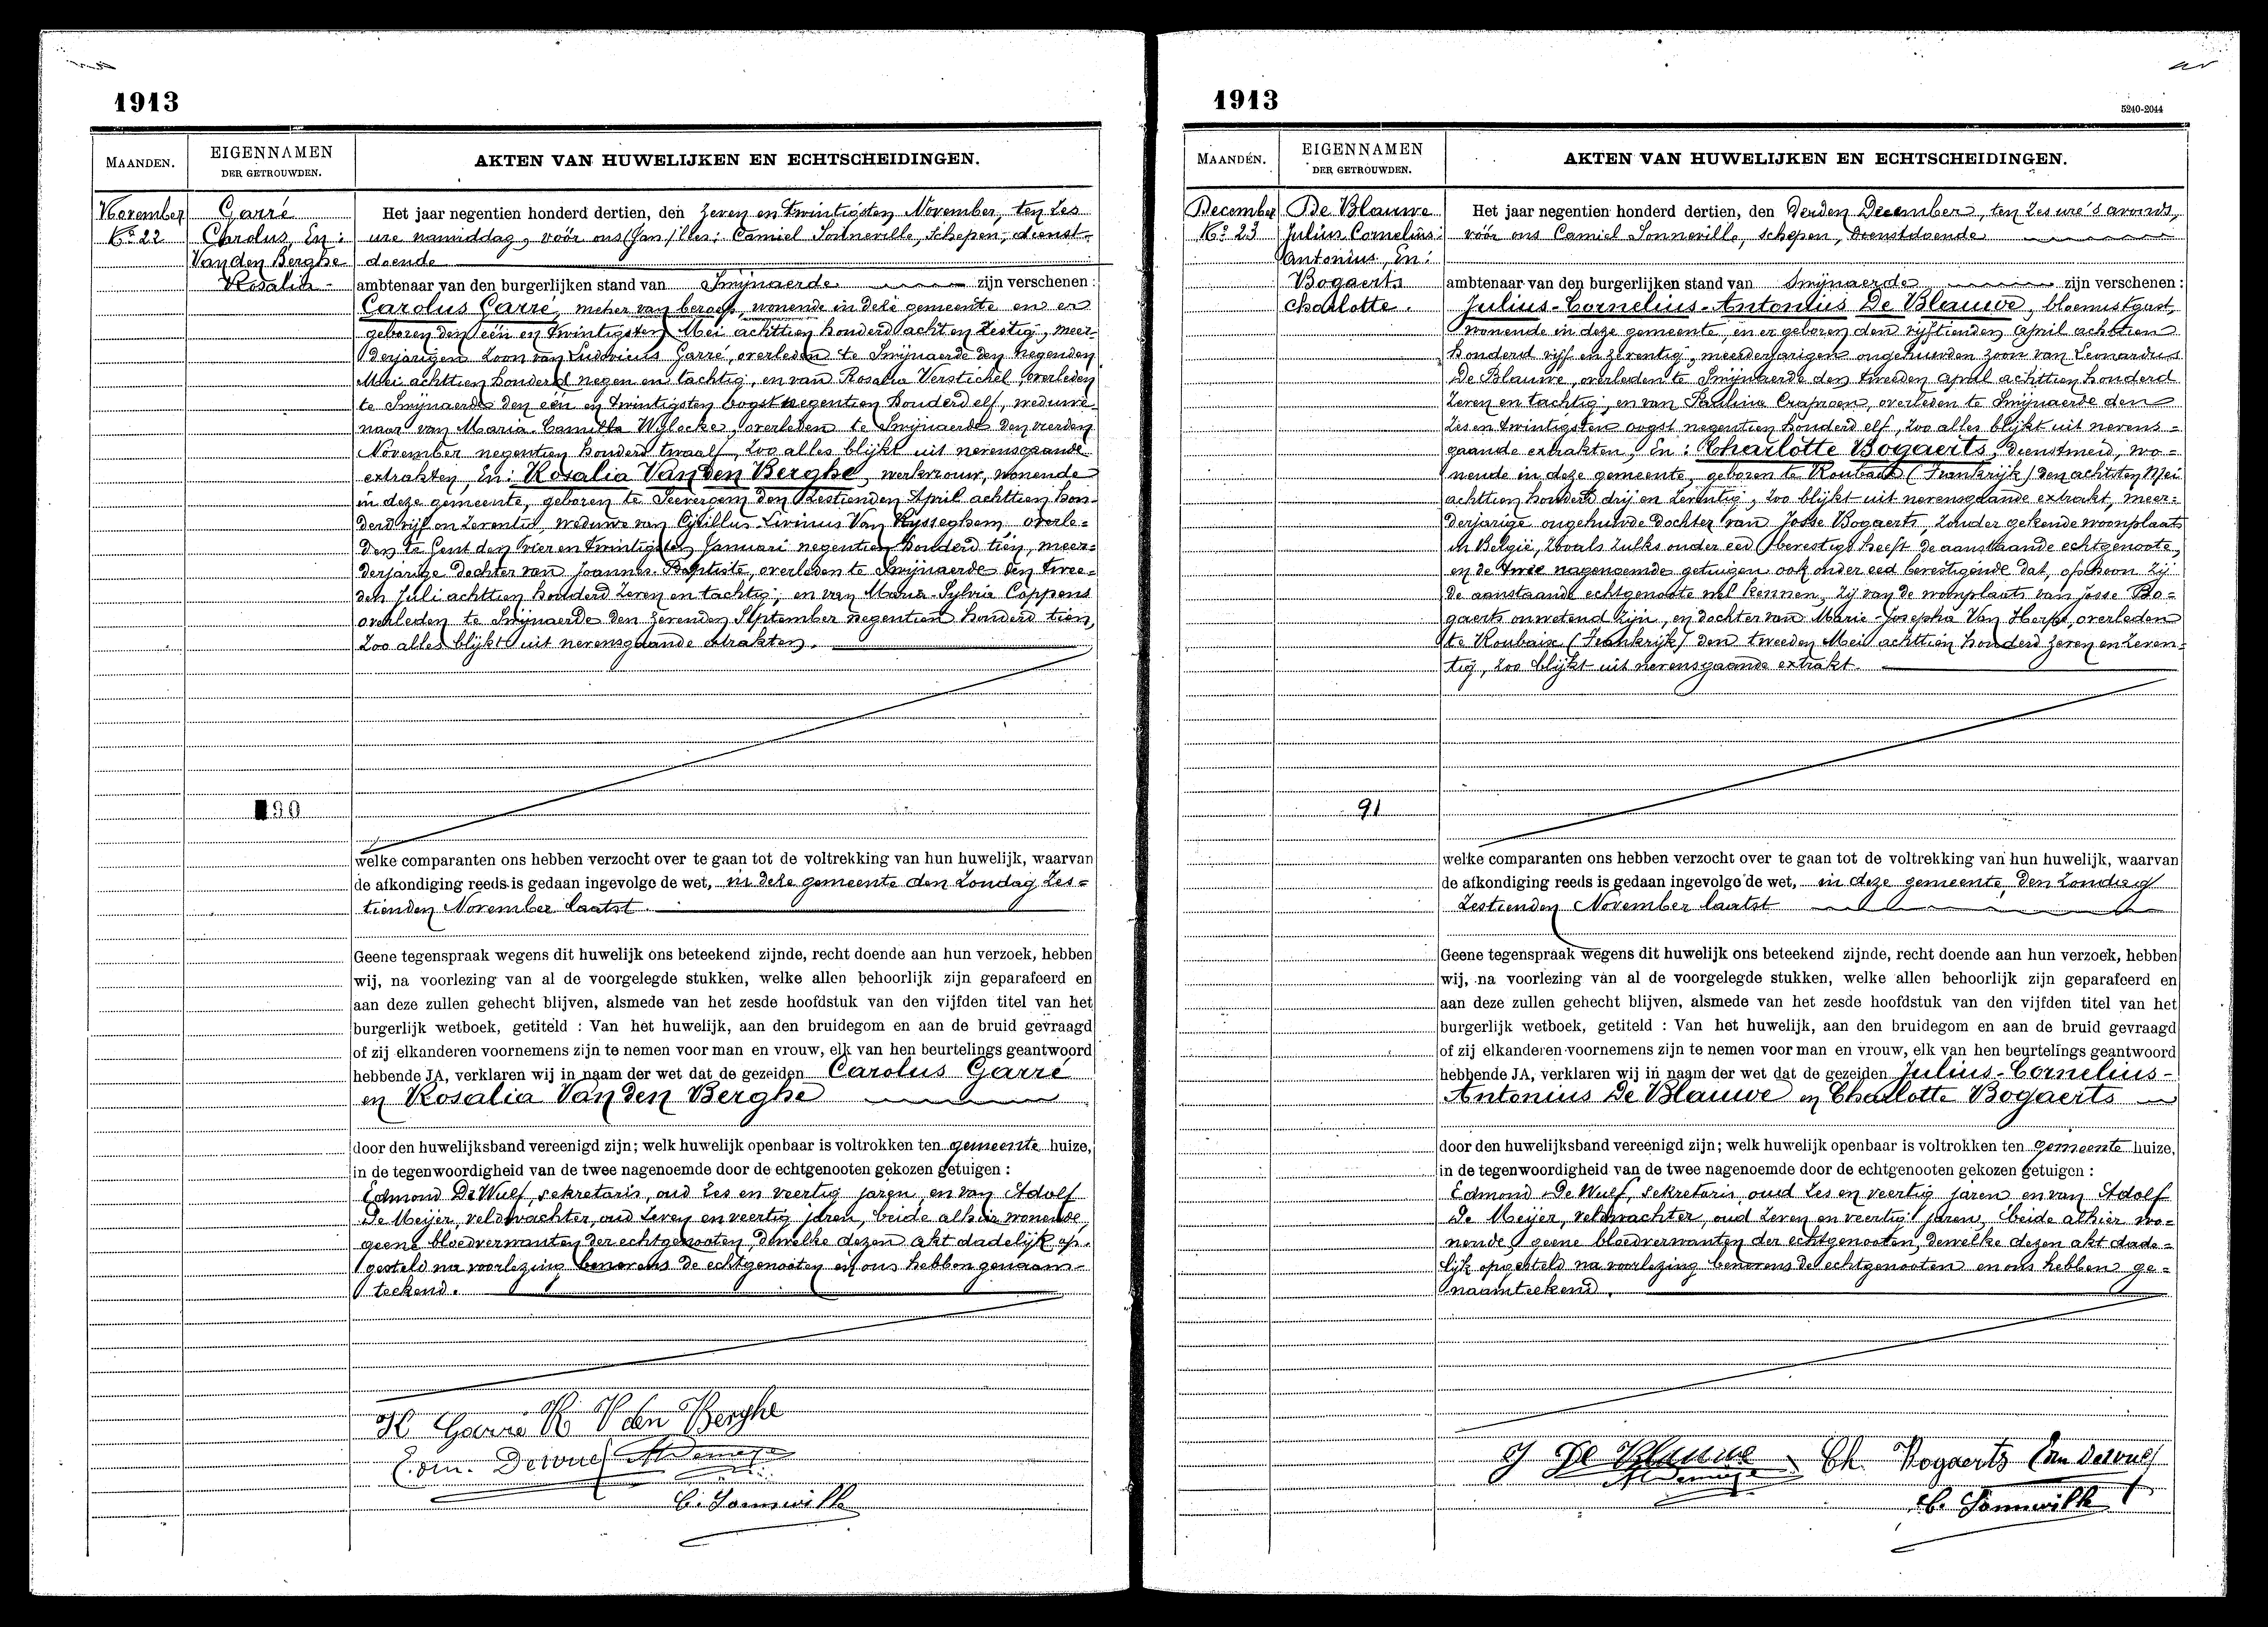 1913
MAANDEN.
EIGENNAMEN
DER GETROUWDEN.
AKTEN VAN HUWELIJKEN EN ECHTSCHEIDINGEN.
November
No 22
Garré
Carolus, En:
Van den Berghe
Rosalia -
Het jaar negentien honderd dertien, den zeven en twintigsten November, ten zes
ure namiddag, vóór ons Camiel Sonneville, schepen, dienst-
doende
ambtenaar van den burgerlijken stand van Swijnaerde zijn verschenen:
Carolus Garré, metser van beroep, wonende in deze gemeente en er
geboren den één en twintigsten Mei achttien honderd acht en zestig, meer-
derjarigen zoon van Ludovicus Garré, overleden te Swijnaerde den negenden
Mei achttien honderd negen en tachtig, en van Rosalia Verstichel, overleden
te Swijnaerde den één en twintigsten oogst negentien honderd elf, weduwe-
naar van Maria-Camilla Wylocke, overleden te Swijnaerde den vierden
November negentien honderd twaalf, zoo alles blijkt uit nevensgaande
extrakten, En: Rosalia Van den Berghe, werkvrouw, wonende
in deze gemeente, geboren te Seevergem den zestienden April achttien hon-
derd vijf en zeventig, weduwe van Cyrillus-Livinus Van Hysseghem, overle-
den te Gent den vier en twintigsten Januari negentien honderd tien, meer-
derjarige dochter van Joannes-Baptiste, overleden te Swijnaerde den twee-
den Juli achttien honderd zeven en tachtig, en van Maria-Sylvia Coppens
overleden te Swijnaerde den zevenden September negentien honderd tien,
zoo alles blijkt uit nevensgaande extrakten.
90
welke comparanten ons hebben verzocht over te gaan tot de voltrekking van hun huwelijk, waarvan
de afkondiging reeds is gedaan ingevolge de wet, in deze gemeente den Zondag zes-
tienden November laatst.
Geene tegenspraak wegens dit huwelijk ons beteekend zijnde, recht doende aan hun verzoek, hebben
wij, na voorlezing van al de voorgelegde stukken, welke allen behoorlijk zijn geparafeerd en
aan deze zullen gehecht blijven, alsmede van het zesde hoofdstuk van den vijfden titel van het
burgerlijk wetboek, getiteld : Van het huwelijk, aan den bruidegom en aan de bruid gevraagd
of zij elkanderen voornemens zijn te nemen voor man en vrouw, elk van hen beurtelings geantwoord
hebbende JA, verklaren wij in naam der wet dat de gezeiden Carolus Garré
en Rosalia Van den Berghe
door den huwelijksband vereenigd zijn; welk huwelijk openbaar is voltrokken ten gemeente huize,
in de tegenwoordigheid van de twee nagenoemde door de echtgenooten gekozen getuigen :
Edmond De Wulf, sekretaris, oud zes en veertig jaren, en van Adolf
De Meijer, veldwachter, oud zeven en veertig jaren, beide alhier wonende,
geene bloedverwanten der echtgenooten, dewelke dezen akt dadelijk op-
gesteld na voorlezing benevens de echtgenooten en ons hebben genaam-
teekend.
K Garré R V den Berghe
Edm. Dewulf ADemeyer
C. Sonneville
1913
5240-2044
MAANDEN.
EIGENNAMEN
DER GETROUWDEN.
AKTEN VAN HUWELIJKEN EN ECHTSCHEIDINGEN.
December
No 23
De Blauwe
Julius Cornelius
Antonius, En:
Bogaerts
Charlotte.
Het jaar negentien honderd dertien, den derden December, ten zes ure 's avonds,
vóór ons Camiel Sonneville, schepen, dienstdoende
ambtenaar van den burgerlijken stand van Swijnaerde zijn verschenen:
Julius-Cornelius-Antonius De Blauwe, bloemistgast,
wonende in deze gemeente, en er geboren den vijftienden April achttien
honderd vijf en zeventig, meerderjarigen ongehuwden zoon van Leonardus
De Blauwe, overleden te Swijnaerde den tweeden april achttien honderd
zeven en tachtig, en van Paulina Crapoen, overleden te Swijnaerde den
zes en twintigsten oogst negentien honderd elf, zoo alles blijkt uit nevens-
gaande extrakten, En: Charlotte Bogaerts, dienstmeid, wo-
nende in deze gemeente, geboren te Roubaix (Frankrijk) den achtsten Mei
achttien honderd drij en zeventig, zoo blijkt uit nevensgaande extrakt, meer-
derjarige ongehuwde dochter van Josse Bogaerts, zonder gekende woonplaats
in België, zooals zulks onder eed bevestigd heeft de aanstaande echtgenoote,
en de twee nagenoemde getuigen ook onder eed bevestigende dat, ofschoon zij
de aanstaande echtgenoote wel kennen, zij van de woonplaats van Josse Bo-
gaerts onwetend zijn, en dochter van Marie-Josepha Van Herpe, overleden
te Roubaix (Frankrijk) den tweeden Mei achttien honderd zeven en zeven-
tig, zoo blijkt uit nevensgaande extrakt.
91
welke comparanten ons hebben verzocht over te gaan tot de voltrekking van hun huwelijk, waarvan
de afkondiging reeds is gedaan ingevolge de wet, in deze gemeente, den Zondag
zestienden November laatst
Geene tegenspraak wegens dit huwelijk ons beteekend zijnde, recht doende aan hun verzoek, hebben
wij, na voorlezing van al de voorgelegde stukken, welke allen behoorlijk zijn geparafeerd en
aan deze zullen gehecht blijven, alsmede van het zesde hoofdstuk van den vijfden titel van het
burgerlijk wetboek, getiteld : Van het huwelijk, aan den bruidegom en aan de bruid gevraagd
of zij elkanderen voornemens zijn te nemen voor man en vrouw, elk van hen beurtelings geantwoord
hebbende JA, verklaren wij in naam der wet dat de gezeiden Julius-Cornelius-
Antonius De Blauwe en Charlotte Bogaerts
door den huwelijksband vereenigd zijn; welk huwelijk openbaar is voltrokken ten gemeente huize,
in de tegenwoordigheid van de twee nagenoemde door de echtgenooten gekozen getuigen :
Edmond De Wulf, sekretaris, oud zes en veertig jaren en van Adolf
De Meijer, veldwachter, oud zeven en veertig jaren, beide alhier wo-
nende, geene bloedverwanten der echtgenooten, dewelke dezen akt dade-
lijk opgesteld na voorlezing benevens de echtgenooten en ons hebben ge-
naamteekend.
J De Blauwe Ch. Bogaerts Edm Dewulf
ADemeyer
C. Sonneville